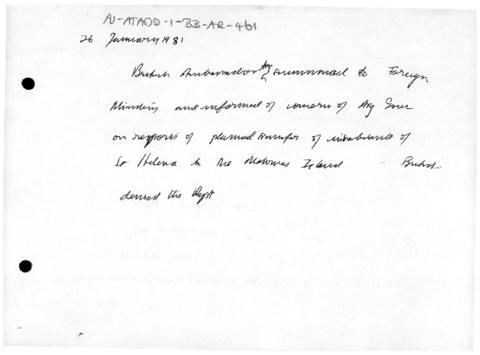 AJ-ATADD-1-BB-AR-461
26 January 1981
British Ambassador Arg summoned to Foreign
Ministry and informed of concern of Arg Gover
on reports of planned transfer of inhabitants of
St Helena to the Malvinas Island - British
denied the Rept